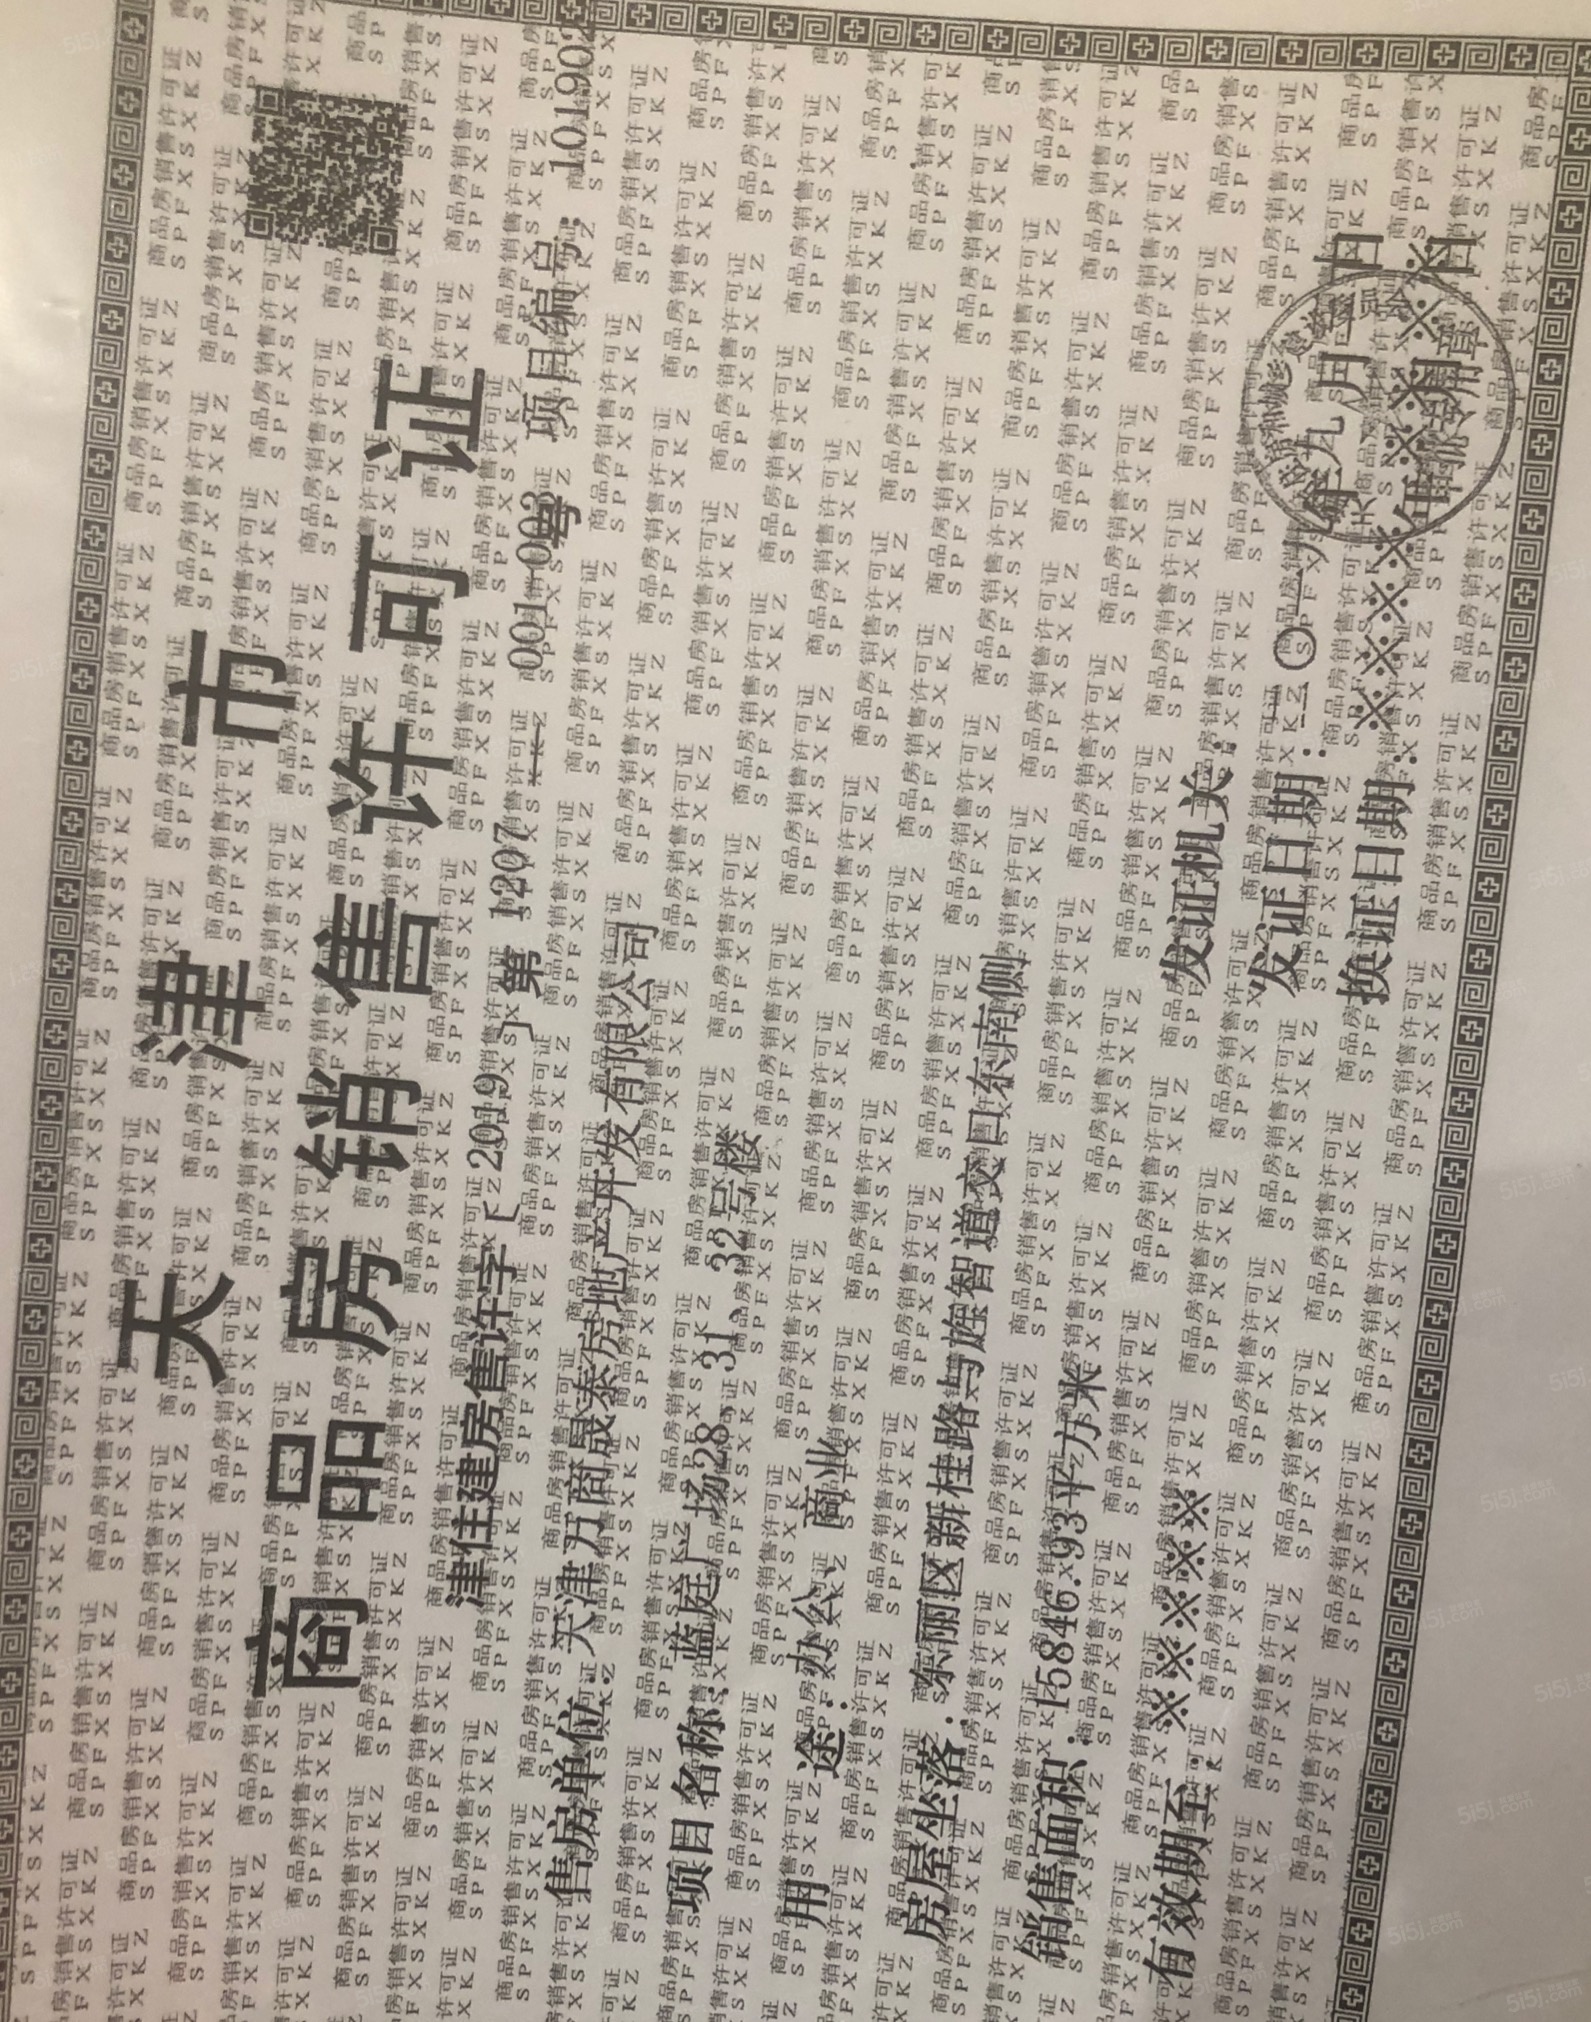 天津市
商品房销售许可证
项目编号：1019902
津住建房售许字［2019］第 1207-001-003 号
售房单位：天津万商晟泰房地产开发有限公司
项目名称：蓝庭广场28、31、32号楼
用途：办公、商业
房屋坐落：东丽区新桂路与旌智道交口东南侧
销售面积：15846.93平方米
有效期至：※※※※※※
发证机关：
发证日期：二〇
换证日期：※※※※年※※月※※日
审批专用章
商品房销售许可证
SPFXSXKZ
5i5j.com